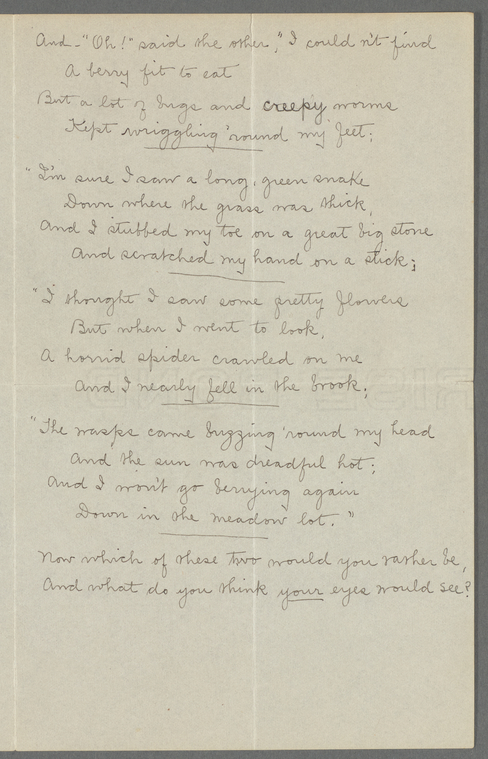 And - "Oh!" said the other, "I couldn't find
A berry fit to eat
But a lot of bugs and creepy worms
Kept wriggling 'round my feet;
"I'm sure I saw a long, green snake
Down where the grass was thick,
And I stubbed my toe on a great big stone
And scratched my hand on a stick;
"I thought I saw some pretty flowers
But when I went to look,
A horrid spider crawled on me
And I nearly fell in the brook;
"The wasps came buzzing 'round my head
And the sun was dreadful hot;
And I won't go berrying again
Down in the meadow lot."
Now which of these two would you rather be,
And what do you think your eyes would see?